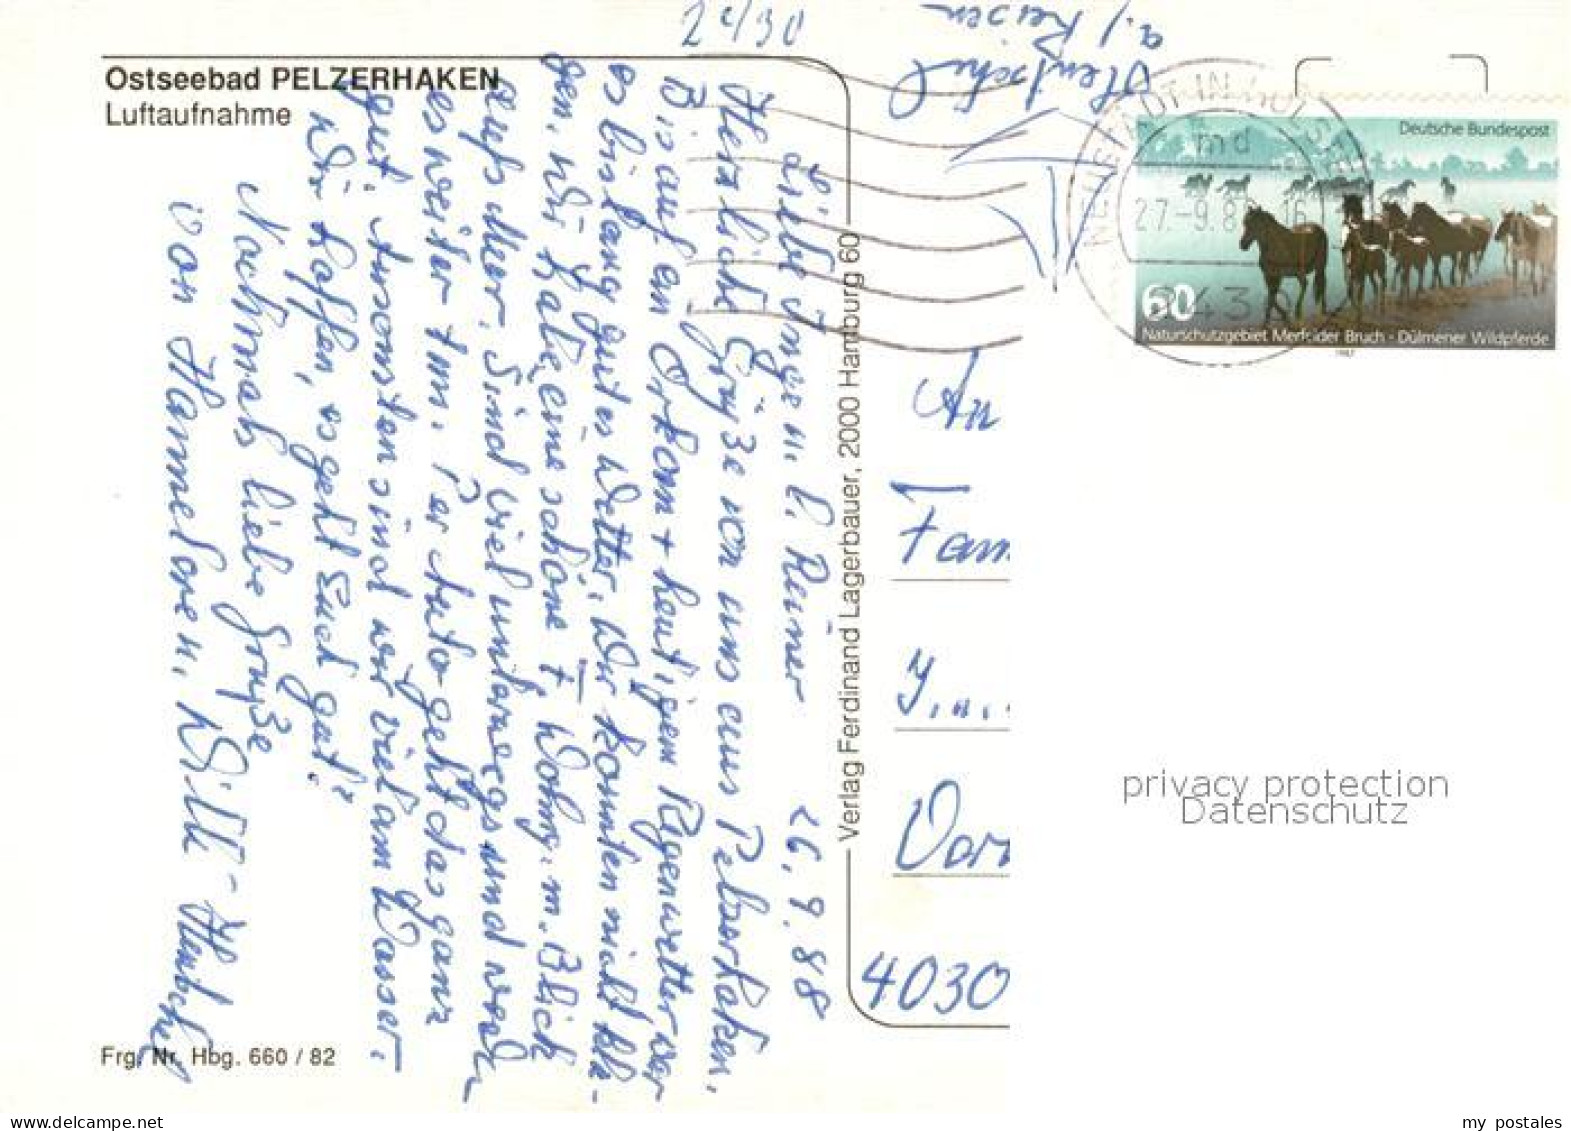 Ostseebad PELZERHAKEN
Luftaufnahme
Liebe Inge u. l. Reiner 26.9.88
Herzliche Grüße von uns aus Pelzerhaken.
Bis auf ein Orkan + heutigem Regenwetter war
es bislang gutes Wetter. Wir konnten nicht kla-
gen. Wir habe eine schöne Wohng. m. Blick
aufs Meer. Sind viel unterwegs und wenn
es weiter Per Auto geht das ganz
gut. Ansonsten sind wir viel am Wasser.
Wir hoffen, es geht Euch gut?
Nochmals liebe Grüße
von Hannelore u. Willi - Hentschel
Frg. Nr. Hbg. 660 / 82
Verlag Ferdinand Lagerbauer, 2000 Hamburg 60
Hentschel
a./ Reisen
Deutsche Bundespost
60
Naturschutzgebiet Merfelder Bruch - Dülmener Wildpferde
1987
NEUSTADT IN HOLSTEIN
md
27.-9.8 16
243
An
Fam
Vor
4030
privacy protection
Datenschutz
my postales